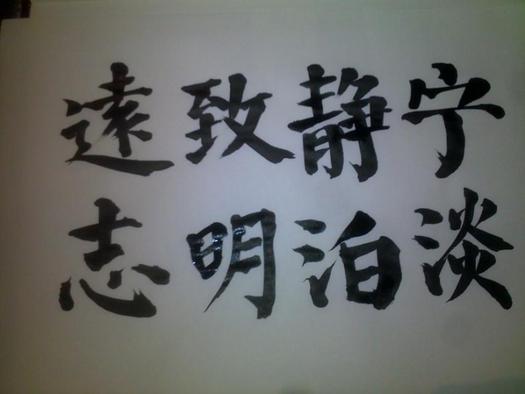 宁静致遠
淡泊明志